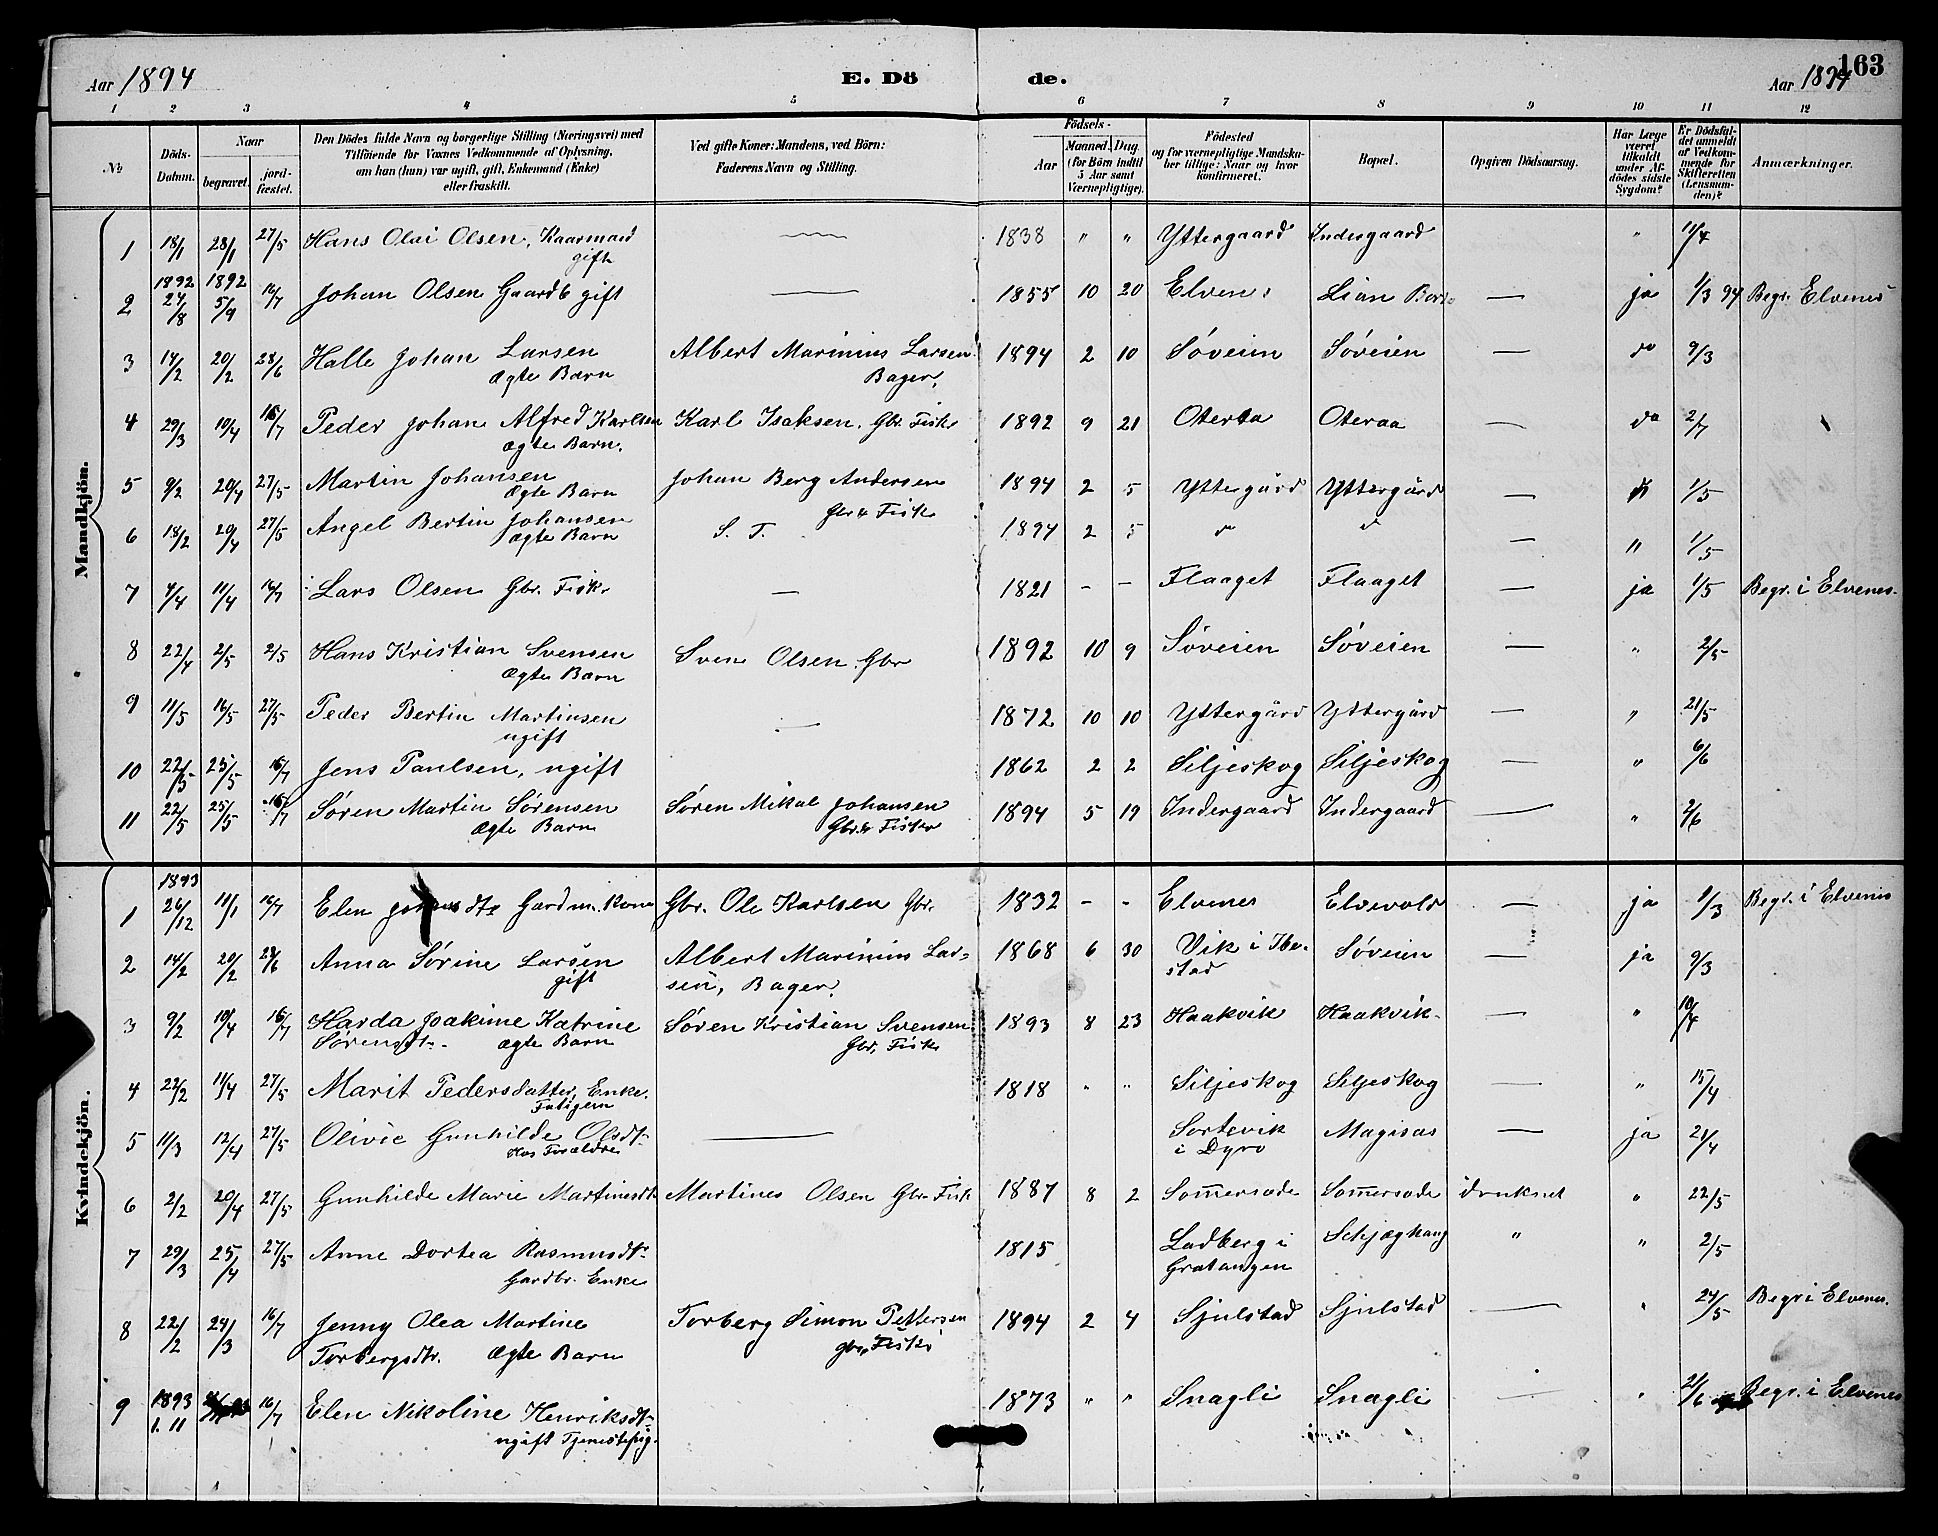 Aar 1894 E. Dö de. Aar 1894 163
1 2 3 4 5 6 7 8 9 10 11 12
№
Döds-Datum.
Naar
begravet.
jord-fæstet.
Den Dödes fulde Navn og borgerlige Stilling (Næringsvei) med
Tilföiende for Voxnes Vedkommende af Oplysning,
om han (hun) var ugift, gift, Enkemand (Enke)
eller fraskilt.
Ved gifte Koner: Mandens, ved Börn:
Faderens Navn og Stilling.
Födsels-
Aar
Maaned. Dag.
(for Börn indtil
5 Aar samt
Værnepligtige).
Födested
og for værnepligtige Mandska-
ber tillige: Naar og hvor
konfirmeret.
Bopæl.
Opgiven Dödsaarsag.
Har Læge
været
tilkaldt
under Af-
dödes sidste
Sygdom?
Er Dödsfal-
det anmeldt
af Vedkom-
mende for
Skifteretten
(Lensman-
den)?
Anmærkninger.
Mandkjön.
1 18/1 28/1 27/5 Hans Olai Olsen, Kaarmand 1838 " " Yttergaard Indergaard " 11/4
gift
1892 1892
2 27/8 5/9 16/7 Johan Olsen Gaardb gift 1855 10 20 Elvenes Lian — ja 1/3 94 Begr. Elvenes
3 14/2 20/2 28/6 Halle Johan Larsen Albert Marinius Larsen 1894 2 10 Søveien Søveien — do 9/3
Ægte Barn Bager,
4 29/3 10/4 16/7 Peder Johan Alfred Karlsen Karl Isaksen. Gbr. Fisk. 1892 9 21 Oteraa Oteraa — do 2/7
Ægte Barn.
5 9/2 20/4 27/5 Martin Johansen Johan Berg Andersen 1894 2 5 Yttergård Yttergård — 1/5
Ægte Barn Gbr & Fisk.
6 18/2 20/4 27/5 Angel Bertin Johansen S. T. 1894 2 5 — " 1/5
Ægte Barn
7 4/4 11/4 16/7 Lars Olsen Gbr. Fisk. — 1821 - - Flaaget Flaaget — ja 1/5 Begr. i Elvenes.
8 22/4 2/5 2/5 Hans Kristian Svensen Sven Olsen. Gbr 1892 10 9 Søveien Søveien — " 2/5
Ægte Barn
9 11/5 16/5 27/5 Peder Bertin Martinsen — 1872 10 10 Yttergård Yttergård — " 21/5
ugift
10 22/5 25/5 16/7 Jens Paulsen, ugift 1862 2 2 Siljeskog Siljeskog — " 6/6
11 22/5 25/5 16/7 Søren Martin Sørensen Søren Mikal Johansen 1894 5 19 Indergaard Indergaard — " 2/6
Ægte Barn Gbr. & Fisker
Kvindekjön.
1893
1 26/12 11/1 16/7 Elen Gardm. kone Gbr. Ole Karlsen Gbr. 1832 - - Elvenes Elvevold — ja 1/3 Begr. i Elvenes
2 14/2 20/2 28/6 Anna Sørine Larsen Albert Marinius Lar- 1868 6 30 Vik i Ibe- Søveien — ja 9/3
gift sen, Bager. stad
3 9/2 10/4 16/7 Harda Joakime Katrine Søren Kristian Svensen 1893 8 23 Haakvik Haakvik — " 10/4
Sørensdt. Ægte Barn Gbr, Fisk.
4 22/2 11/4 27/5 Marit Pedersdatter, Enke. 1818 " " Siljeskog Siljeskog — " 15/4
Fatigem
5 11/3 12/4 27/5 Olivie Gunhilde Olsdt. — Sortevik Magisas — ja 21/4
Hos Forældre i Dyrø
6 2/2 20/4 27/5 Gunhilde Marie Martinesdt. Martines Olsen Gbr Fisk 1887 8 2 Sommersæde Sommersæde druknet " 22/5
7 29/3 25/4 27/5 Anne Dortea Rasmusdt. 1815 Ladberg i Schjæghaug " " 2/5
Gardbr. Enke Gratangen
8 22/2 24/3 16/7 Jenny Olea Martine Torberg Simon Pettersen 1894 2 4 Sjulstad Sjulstad — " 24/5 Begr i Elvenes.
Torbergsdtr. Ægte Barn gbr, Fisk.
9 1893 16/7 Elen Nikoline Henriksdt. 1873 " " Snagli Snagli — " 21/6 Begr. i Elvenes
1. 11 ugift Tjenestepig.